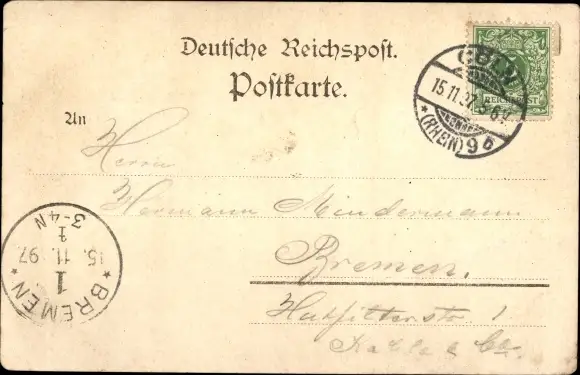 Deutsche Reichspost.
Postkarte.
CÖLN
15.11.97. 5-6N.
* (RHEIN) 9 b
REICHSPOST
An
Herrn
Hermann Mindermann
Bremen.
Hutfilterstr. 1
Kahle & Co.
* BREMEN *
1
15. 11. 97.
3-4 N